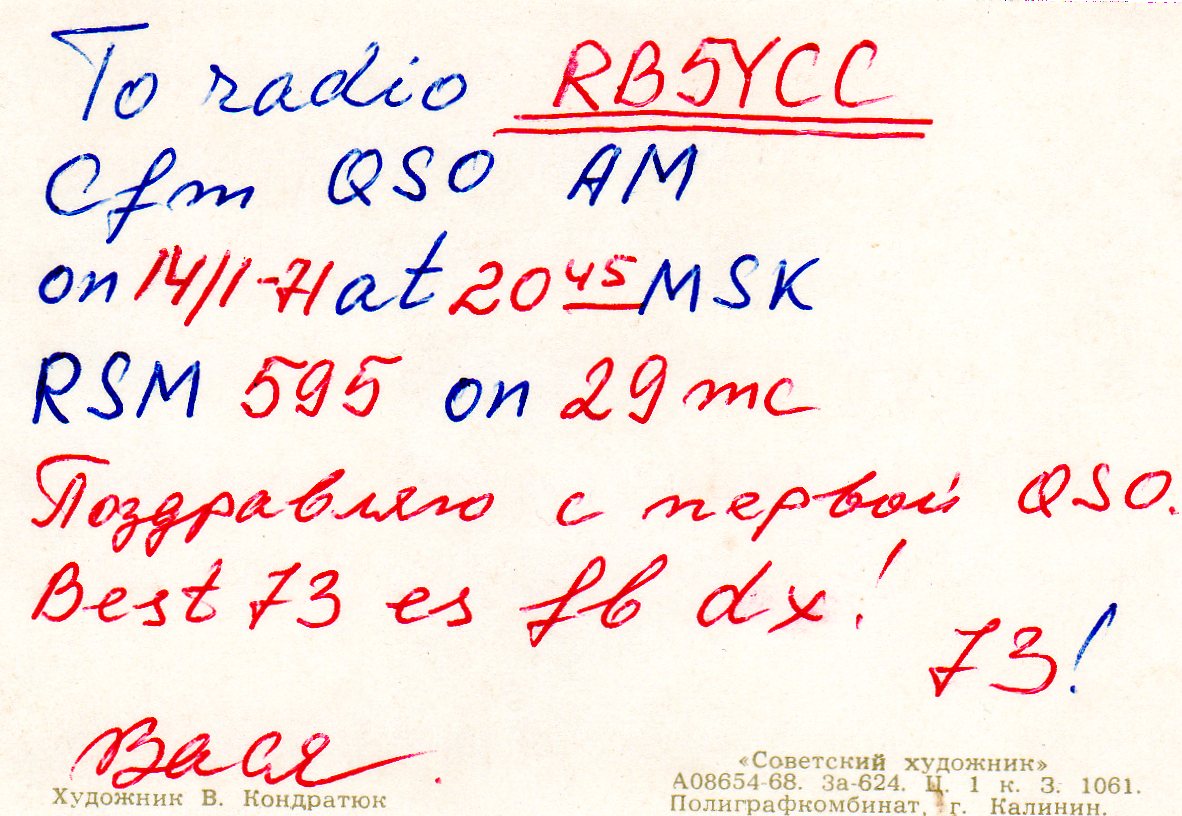 To radio RB5YCC
Cfm QSO AM
on 14/I-71 at 20 45 MSK
RSM 595 on 29 mc
Поздравляю с первой QSO.
Best 73 es fb dx!
73!
Вася.
Художник В. Кондратюк
«Советский художник»
А08654-68. За-624. Ц. 1 к. З. 1061.
Полиграфкомбинат, г. Калинин.